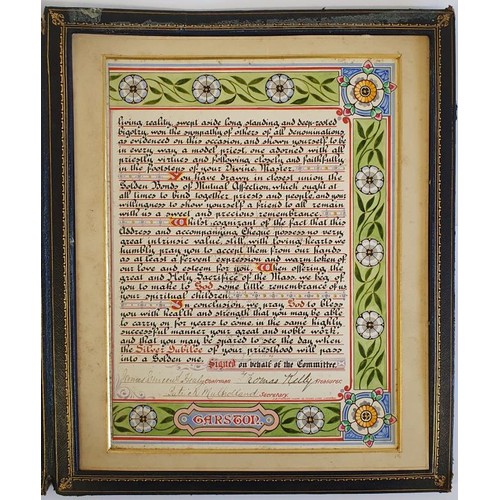 living reality, swept aside long standing and deep-rooted
bigotry, won the sympathy of others of all denominations
as evidenced on this occasion, and shown yourself to be
in every way a model priest, one adorned with all
priestly virtues and following closely and faithfully
in the footsteps of your Divine Master.
You have drawn in closest union the
Golden Bonds of Mutual Affection, which ought at
all times to bind together priests and people, and your
willingness to show yourself a friend to all remain
with us a sweet and precious remembrance.
Whilst cognizant of the fact that this
Address and accompanying Cheque possess no very
great intrinsic value, still, with loving hearts we
humbly pray you to accept them from our hands,
as at least a fervent expression and warm token of
our love and esteem for you. When offering the
great and Holy Sacrifice of the Mass, we beg of
you to make to God some little remembrance of us
your spiritual children.
In conclusion, we pray God to bless
you with health and strength that you may be able
to carry on for years to come, in the same highly
successful manner your great and noble work,
and that you may be spared to see the day when
the Silver Jubilee of your priesthood will pass
into a Golden one. Signed on behalf of the Committee.
James Vincent Chairman Thomas Kelly Treasurer
Patrick Mulholland Secretary.
GARSTON.